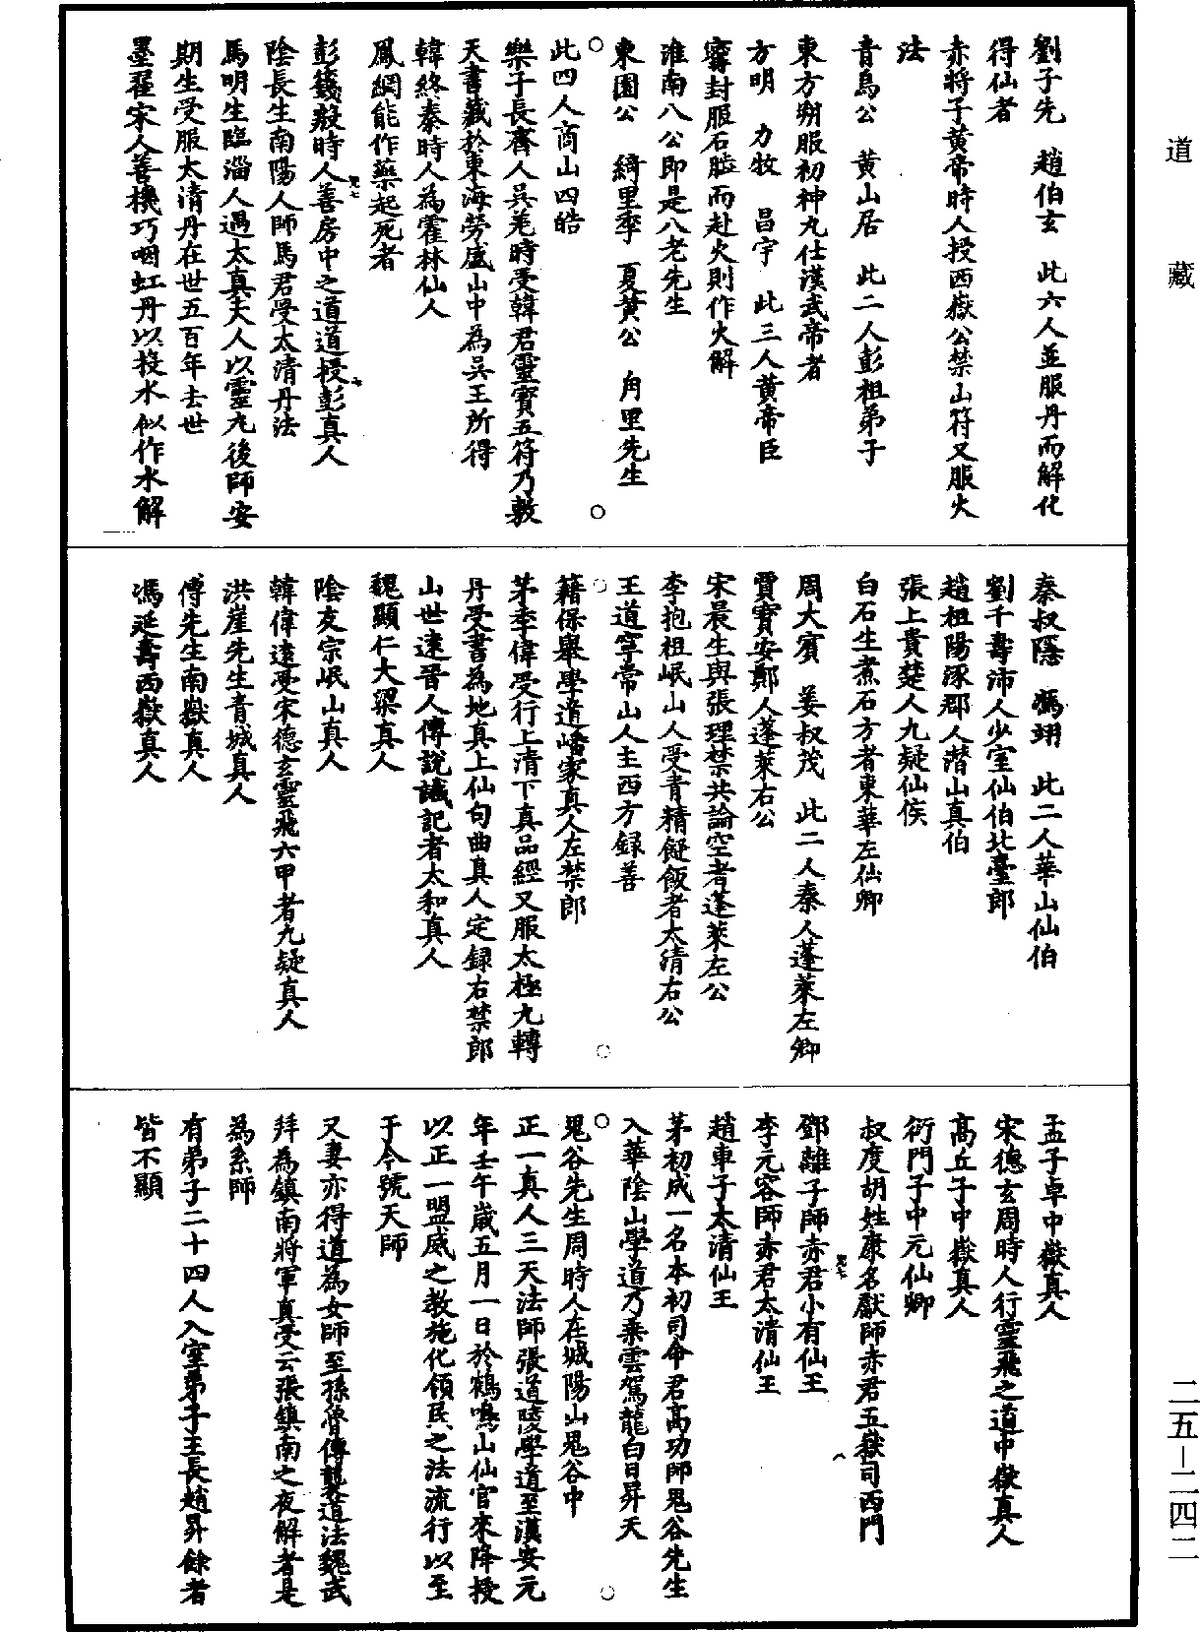 道藏
劉子先　趙伯玄　此六人並服丹而解化
得仙者
赤將子黃帝時人授西嶽公禁山符又服火
法
青烏公　黃山居　此二人彭祖弟子
東方朔服初神丸仕漢武帝者
方明　力牧　昌宇　此三人黃帝臣
甯封服石腦而赴火則作火解
淮南八公即是八老先生
東園公　綺里季　夏黃公　甪里先生
此四人商山四皓
樂子長齊人吳羌時受韓君靈寶五符乃敷
天書藏於東海勞盛山中為吳王所得
韓終秦時人為霍林仙人
鳳綱能作藥起死者
彭籛殷時人善房中之道道授彭真人
陰長生南陽人師馬君受太清丹法
馬明生臨淄人遇太真夫人以靈丸後師安
期生受服太清丹在世五百年去世
墨翟宋人善機巧咽虹丹以投水似作水解
秦叔隱　馮翊　此二人華山仙伯
劉千壽沛人少室仙伯北臺郎
趙祖陽涿郡人潛山真伯
張上貴楚人九疑仙侯
白石生煮石方者東華左仙卿
周大賓　姜叔茂　此二人秦人蓬萊左卿
賈寶安鄭人蓬萊右公
宋晨生與張理禁共論空者蓬萊左公
李抱祖岷山人受青精䭀飯者太清右公
王道寧常山人主西方錄善
籍保舉學道嶓冢真人左禁郎
茅季偉受行上清下真品經又服太極九轉
丹受書為地真上仙句曲真人定錄右禁郎
山世遠晉人傳說讖記者太和真人
魏顯仁大梁真人
陰友宗岷山真人
韓偉遠受宋德玄靈飛六甲者九疑真人
洪崖先生青城真人
傅先生南嶽真人
馮延壽西嶽真人
孟子卓中嶽真人
宋德玄周時人行靈飛之道中嶽真人
高丘子中嶽真人
衍門子中元仙卿
叔度胡姓康名獻師赤君五嶽司西門
鄧離子師赤君小有仙王
李元容師赤君太清仙王
趙車子太清仙王
茅初成一名本初司命君高功師鬼谷先生
入華陰山學道乃乘雲駕龍白日昇天
鬼谷先生周時人在城陽山鬼谷中
正一真人三天法師張道陵學道至漢安元
年壬午歲五月一日於鶴鳴山仙官來降授
以正一盟威之教施化領民之法流行以至
于今號天師
又妻亦得道為女師至孫魯傳襲道法魏武
拜為鎮南將軍真受云張鎮南之夜解者是
為系師
有弟子二十四人入室弟子王長趙昇餘者
皆不顯
二五—二四二